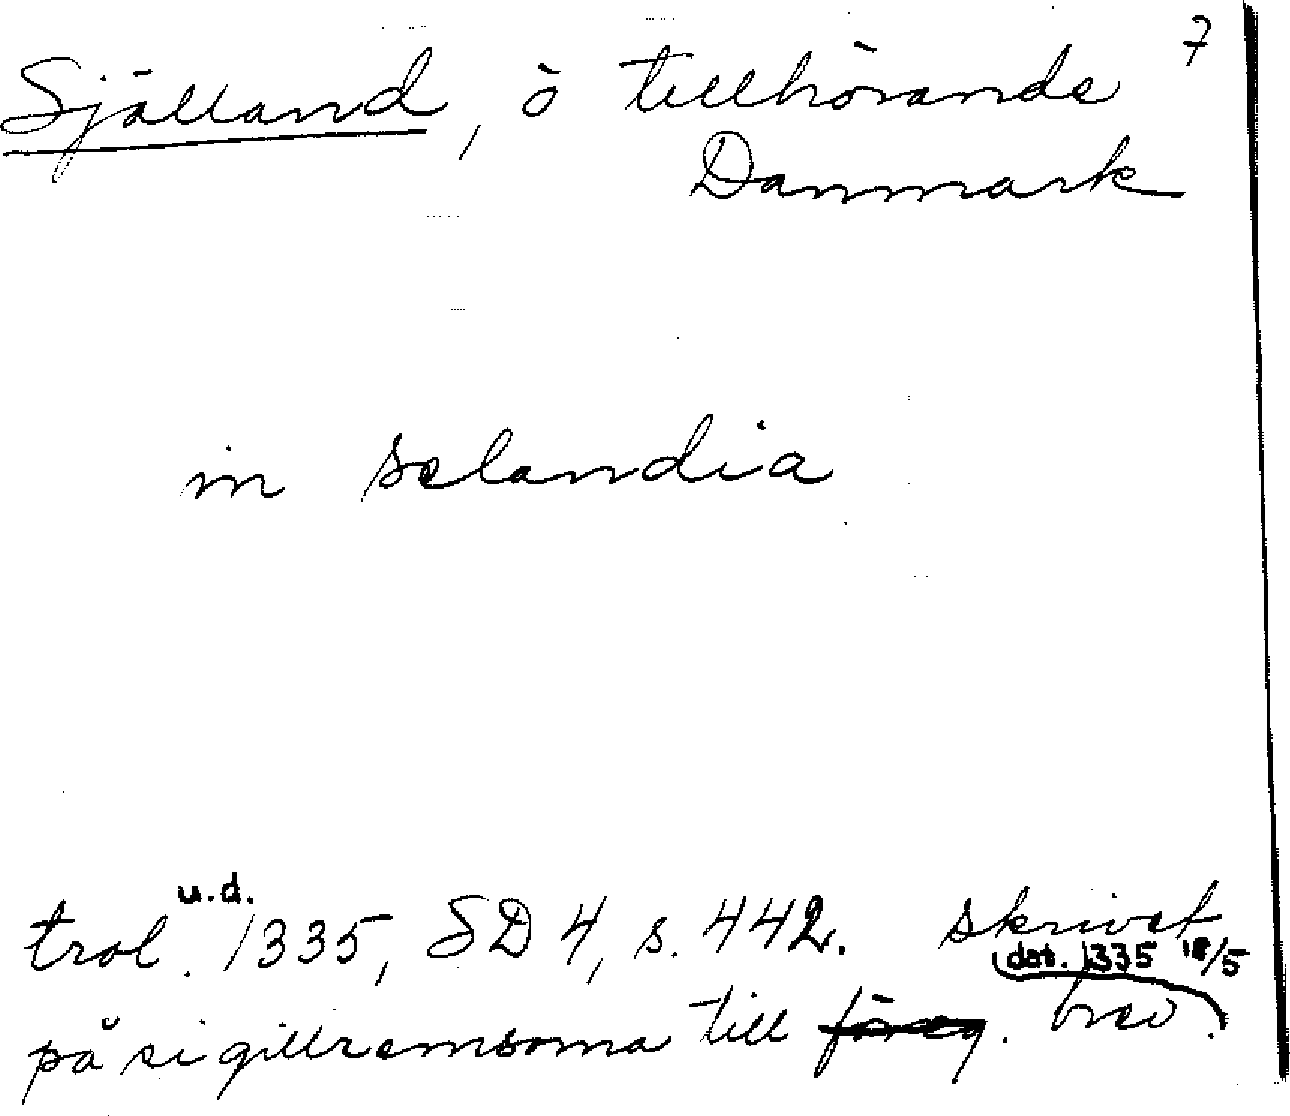 7
Själland, ö tillhörande
Danmark
in selandia
u.d.
trol. 1335, SD 4, s. 442. skrivet
dat. 1335 18/5
på sigillremsorna till föreg. brev.